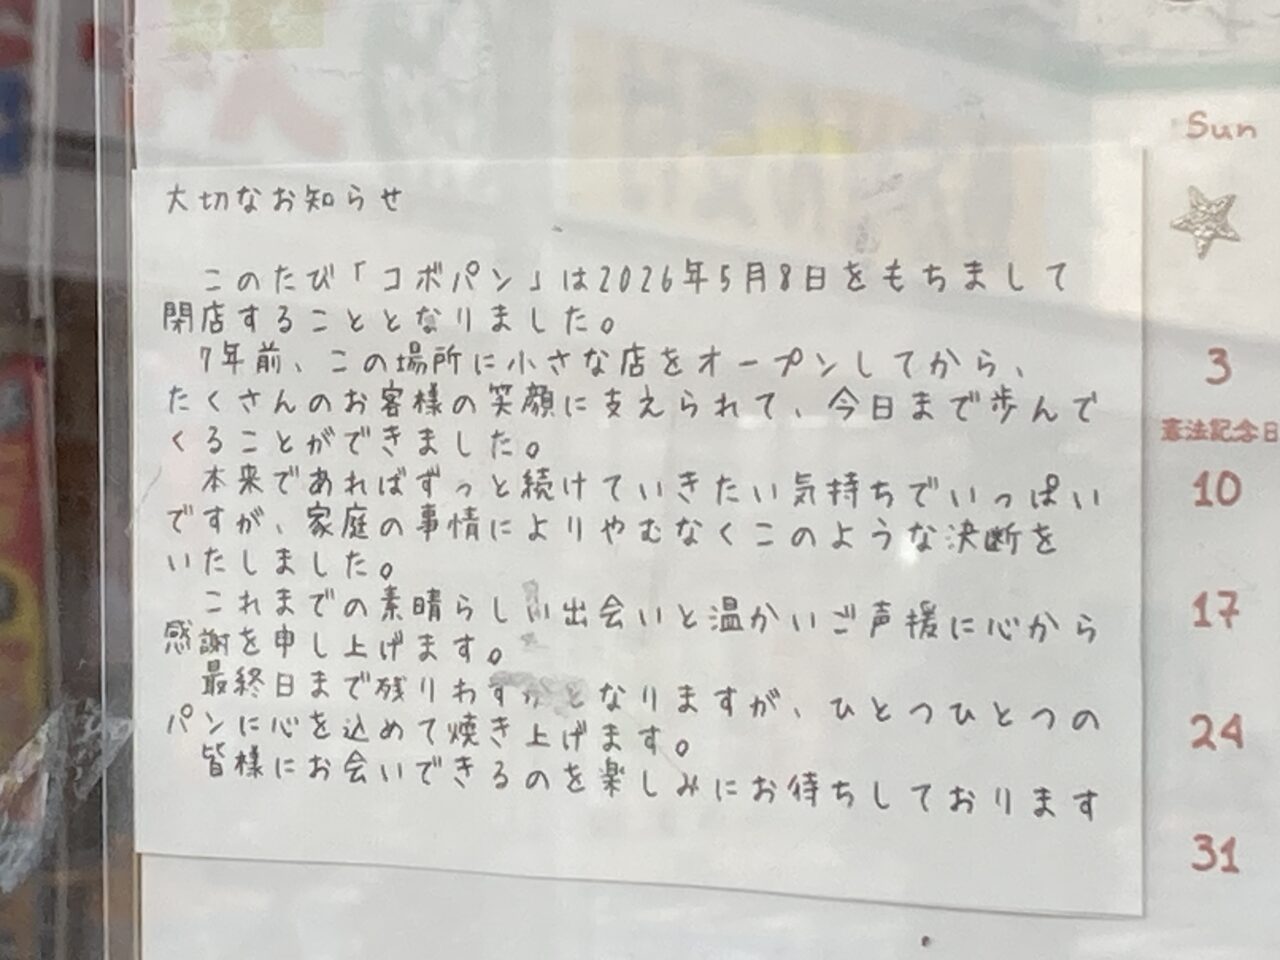 大切なお知らせ
このたび「コボパン」は2026年5月8日をもちまして
閉店することとなりました。
7年前、この場所に小さな店をオープンしてから、
たくさんのお客様の笑顔に支えられて、今日まで歩んで
くることができました。
本来であればずっと続けていきたい気持ちでいっぱい
ですが、家庭の事情によりやむなくこのような決断を
いたしました。
これまでの素晴らしい出会いと温かいご声援に心から
感謝を申し上げます。
最終日まで残りわずかとなりますが、ひとつひとつの
パンに心を込めて焼き上げます。
皆様にお会いできるのを楽しみにお待ちしております
Sun
3
憲法記念日
10
17
24
31